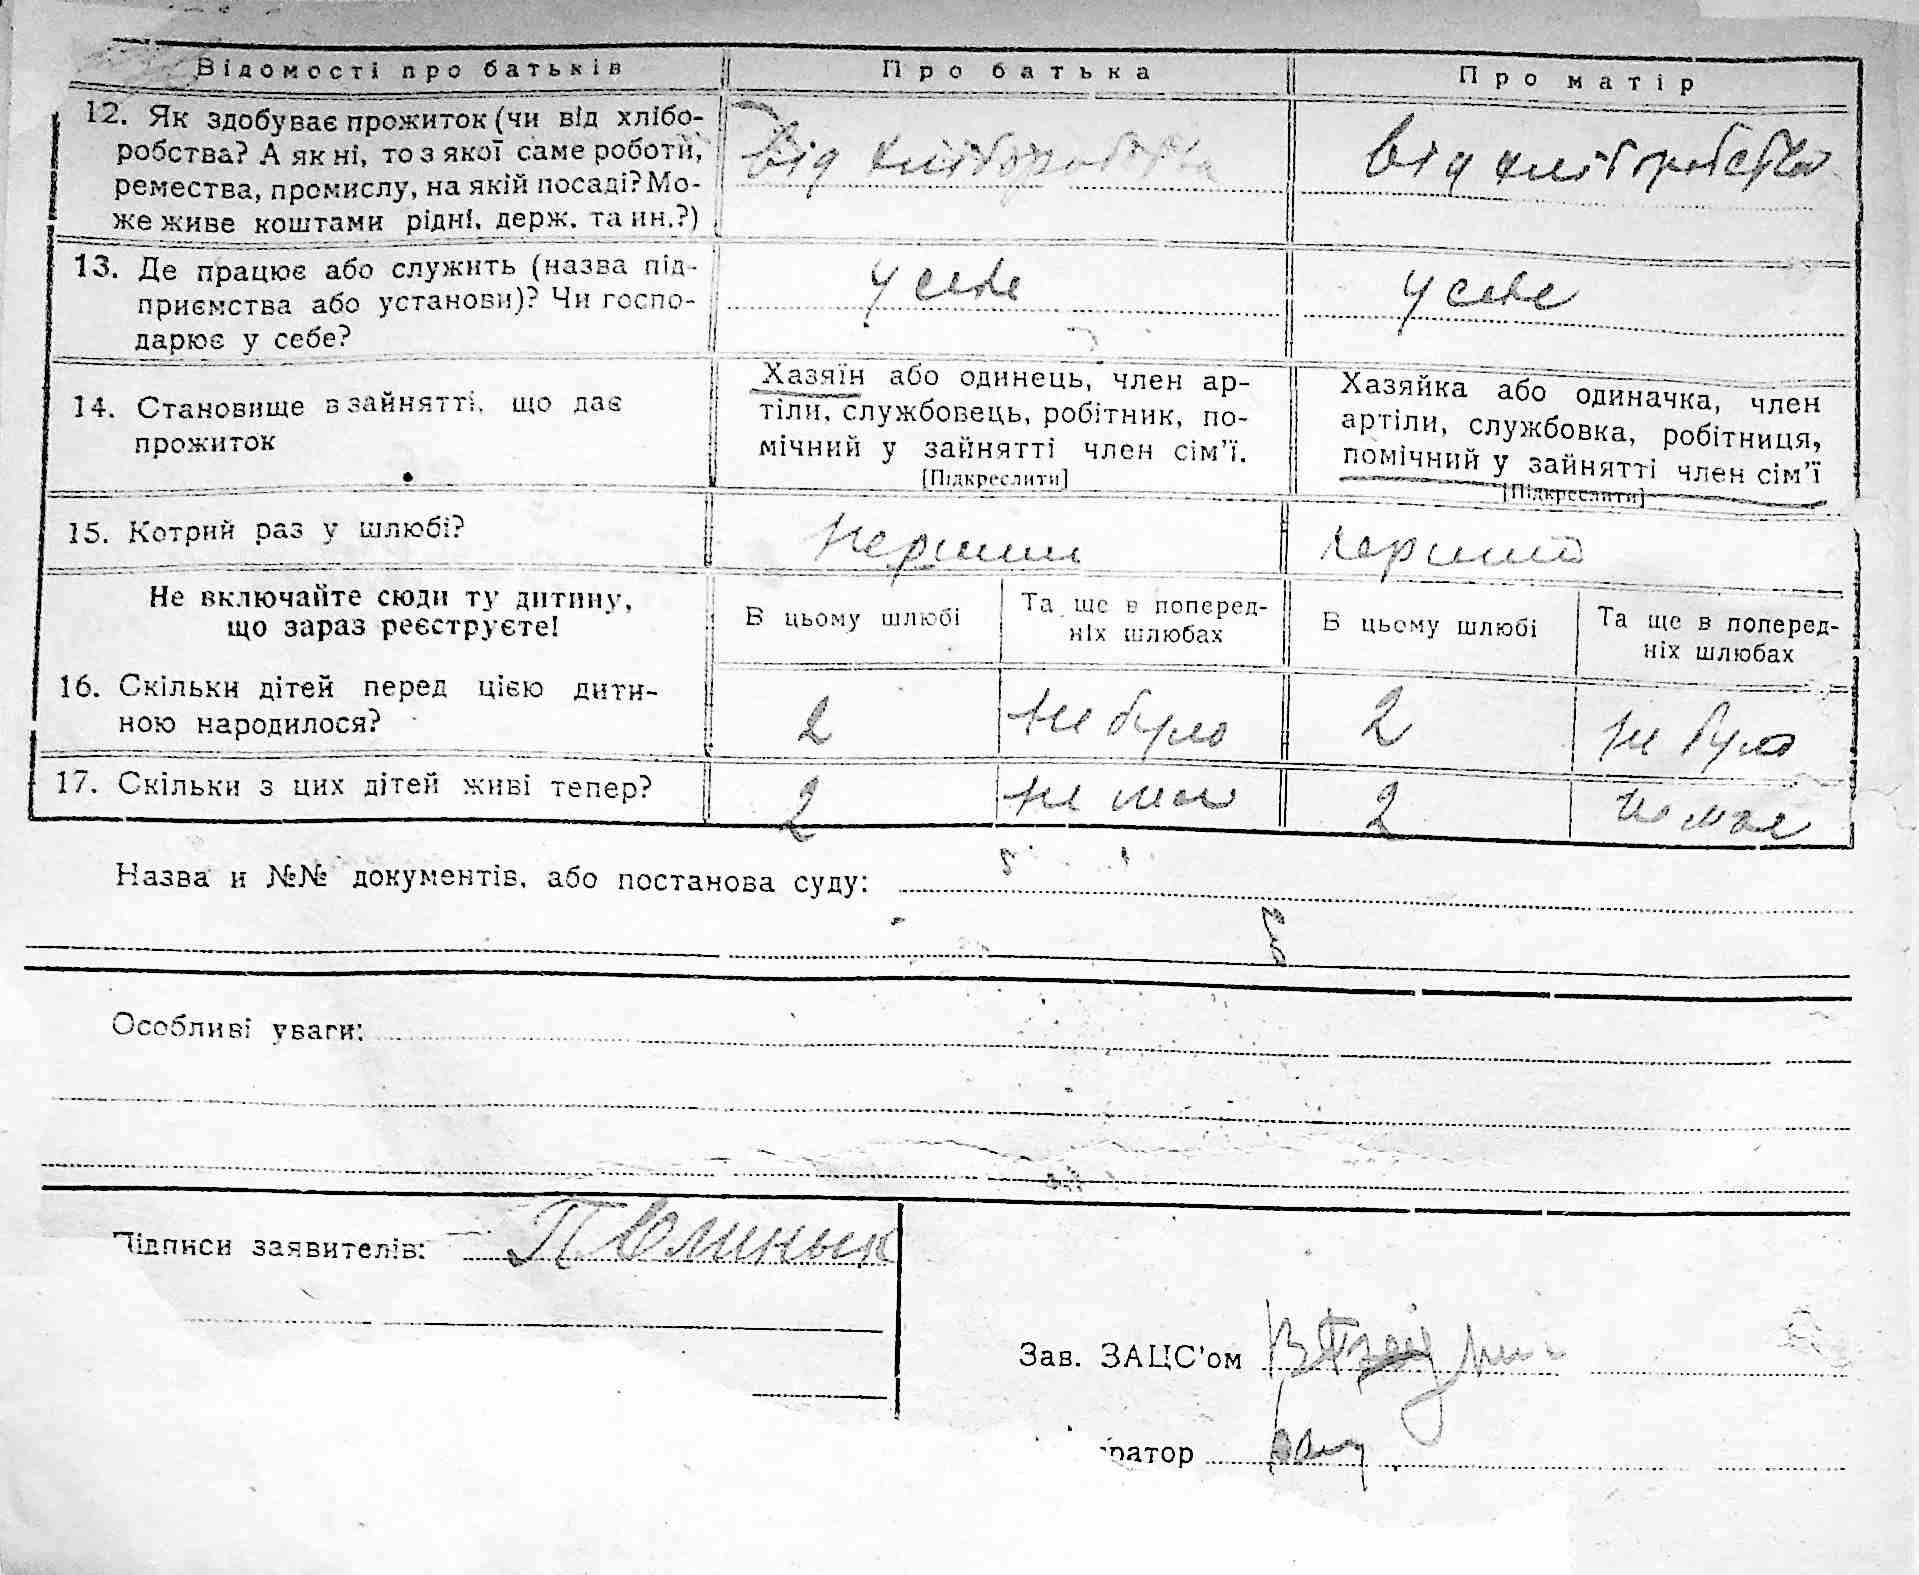 Відомості про батьків
Про батька
Про матір
12. Як здобуває прожиток (чи від хлібо-
робства? А як ні, то з якої саме роботи,
ремества, промислу, на якій посаді? Мо-
же живе коштами рідні, держ. та ин.?)
від хліборобства
від хліборобства
13. Де працює або служить (назва під-
приємства або установи)? Чи госпо-
дарює у себе?
у себе
у себе
14. Становище в зайнятті, що дає
прожиток
Хазяїн або одинець, член ар-
тіли, службовець, робітник, по-
мічний у зайнятті член сім'ї.
[Підкреслити]
Хазяйка або одиначка, член
артіли, службовка, робітниця,
помічний у зайнятті член сім'ї
[Підкреслити]
15. Котрий раз у шлюбі?
перший
перший
Не включайте сюди ту дитину,
що зараз реєструєте!
В цьому шлюбі
Та ще в поперед-
ніх шлюбах
В цьому шлюбі
Та ще в поперед-
ніх шлюбах
16. Скільки дітей перед цією дити-
ною народилося?
2
не було
2
не було
17. Скільки з цих дітей живі тепер?
2
не має
2
не має
Назва и №№ документів, або постанова суду:
Особливі уваги:
Підписи заявителів: П Олиньик
Зав. ЗАЦС'ом
ратор